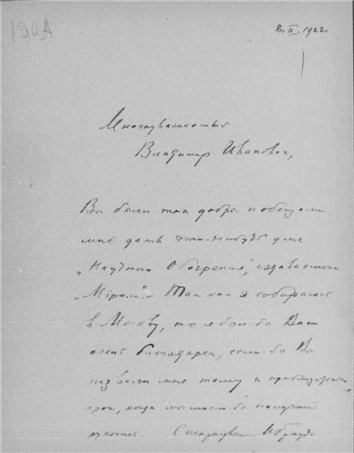 II 1922
Многоуважаемый
Владимир Иванович,
Вы были так добры и обещали
мне дать что-нибудь для
"Научного Обозрения", издаваемого
"Миром". Так как я собираюсь
в Москву, то я был бы Вам
очень благодарен, если бы Вы
назвали мне тему и
срок, когда мы могли бы получить
рукопись. С